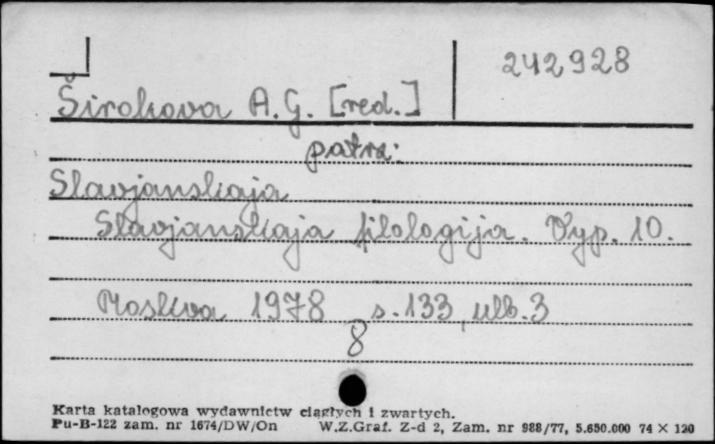 242928
Širokova A.G. [red.]
patrz:
Slavjanskaja
Slavjanskaja filologija. Vyp. 10.
Moskva 1978 s. 133, nlb. 3
8
Karta katalogowa wydawnictw ciągłych i zwartych.
Pu-B-122 zam. nr 1674/DW/On W.Z.Graf. Z-d 2, Zam. nr 988/77, 5.650.000 74 × 120